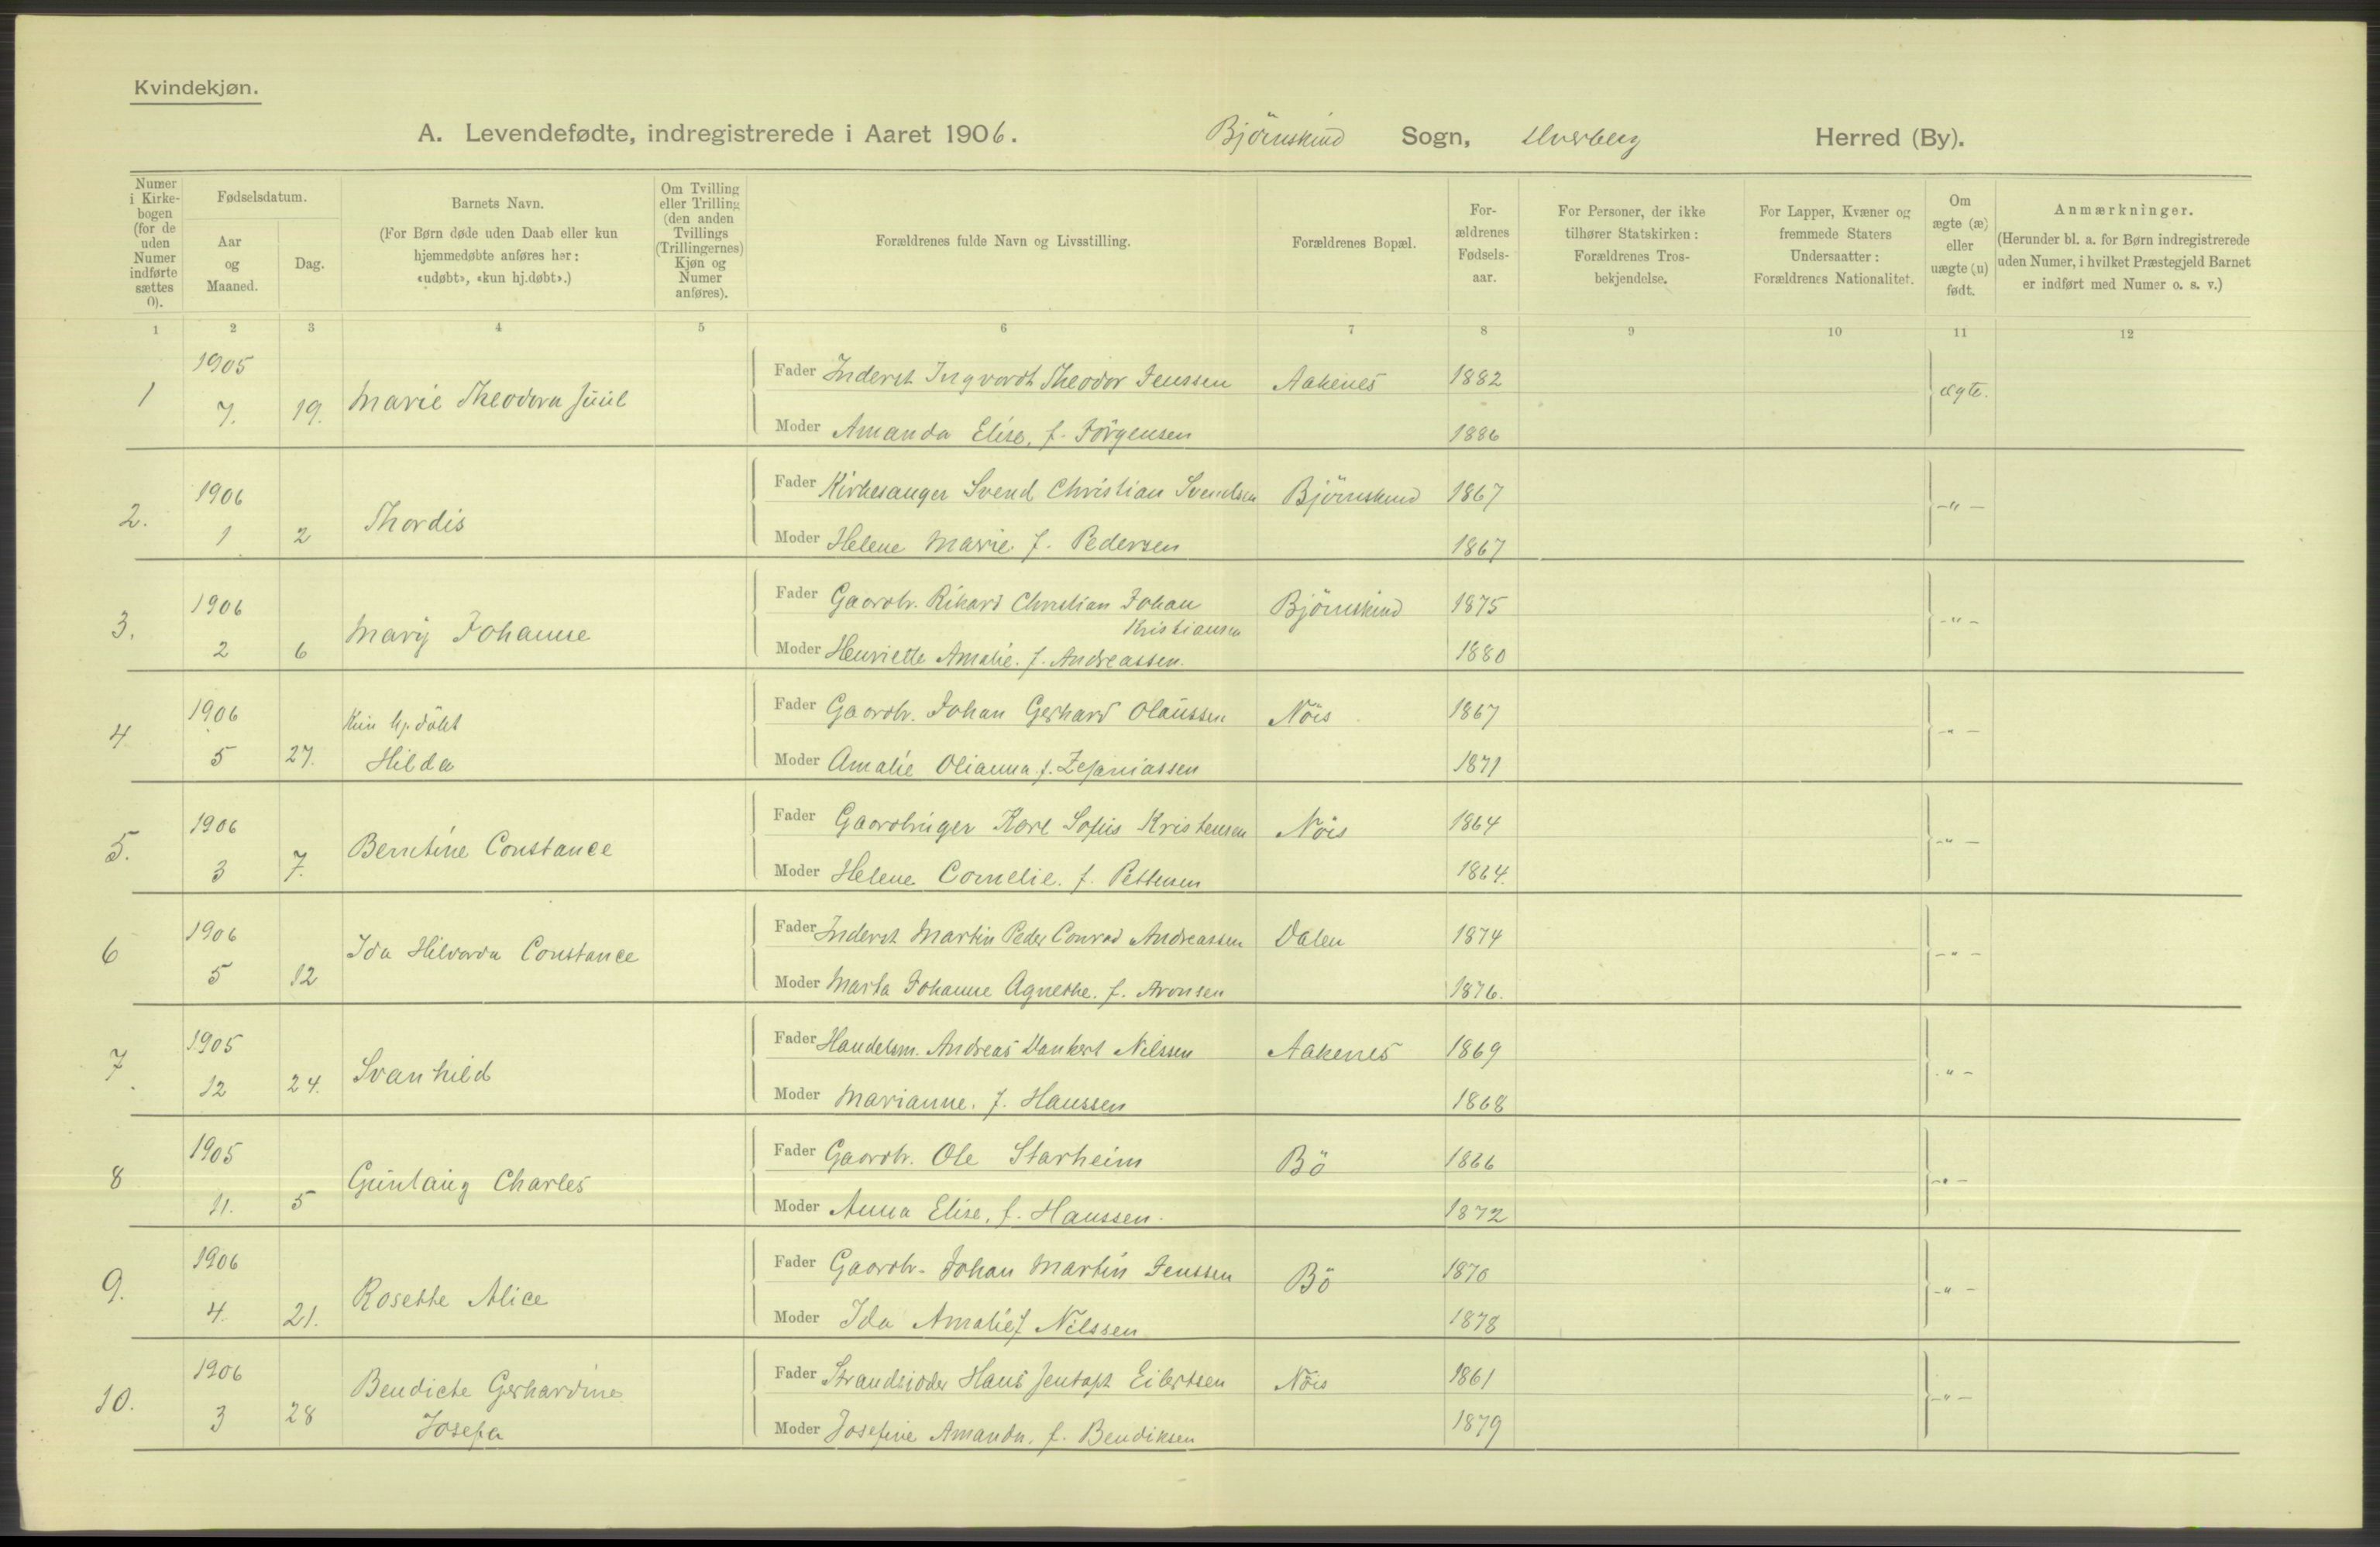 Kvindekjøn.
A. Levendefødte, indregistrerede i Aaret 1906. Björnskind Sogn, Herred (By).
Numer i Kirke-bogen (for de uden Numer indførte sættes 0).
Fødselsdatum.
Aar og Maaned.
Dag.
Barnets Navn.
(For Børn døde uden Daab eller kun hjemmedøbte anføres her: «udøbt», «kun hj.døbt».)
Om Tvilling eller Trilling (den anden Tvillings (Trillingernes) Kjøn og Numer anføres).
Forældrenes fulde Navn og Livsstilling.
Forældrenes Bopæl.
For-ældrenes Fødsels-aar.
For Personer, der ikke tilhører Statskirken: Forældrenes Tros-bekjendelse.
For Lapper, Kvæner og fremmede Staters Undersaatter: Forældrenes Nationalitet.
Om ægte (æ) eller uægte (u) født.
Anmærkninger.
(Herunder bl. a. for Børn indregistrerede uden Numer, i hvilket Præstegjeld Barnet er indført med Numer o. s. v.)
1 2 3 4 5 6 7 8 9 10 11 12
1 1905 7. 19. Marie Theodora Juul
Fader Inderst Ingvardt Theodor Jenssen Aakenes 1882 ægte.
Moder Amanda Elise, f. Jörgensen 1886
2. 1906 1 2 Thordis
Fader Kirkesanger Svend Christian Svendsen Björnskind 1867 -"-
Moder Helene Marie f. Pedersen 1867
3. 1906 2 6 Mary Johanne
Fader Gaardbr. Rikard Christian Johan Kristiansen Björnskind 1875 -"-
Moder Henriette Amalie. f. Andreassen. 1880
4 1906 5 27. Kun hj. döbt
Hilda
Fader Gaardbr. Johan Gerhard Olaussen Nöis 1867 -"-
Moder Amalie Olianna f. Zefaniassen 1871
5. 1906 3 7. Berntine Constance
Fader Gaardbruger Karl Sofus Kristensen Nöis 1864 -"-
Moder Helene Cornelie. f. Pettersen 1864.
6 1906 5 12 Ida Hilvarda Constance
Fader Inderst Martin Peder Conrad Andreassen Dalen 1874 -"-
Moder Marta Johanne Agnethe. f. Aronsen 1876.
7. 1905 12 24. Svanhild
Fader Handelsm. Andreas Dankert Nilssen Aakenes 1869 -"-
Moder Marianne. f. Hanssen 1868
8 1905 11. 5 Gunlaug Charles
Fader Gaardbr. Ole Starheim Bö 1866 -"-
Moder Anna Elise, f. Hanssen. 1872
9. 1906 4. 21. Rosette Alice
Fader Gaardbr. Johan Martin Jenssen Bö 1870 -"-
Moder Ida Amalie f Nilssen 1878
10. 1906 3 28 Bendicte Gerhardine
Josefa
Fader Strandsidder Hans Jentoft Eilertsen Nöis 1861 -"-
Moder Josefine Amanda. f. Bendiksen 1879